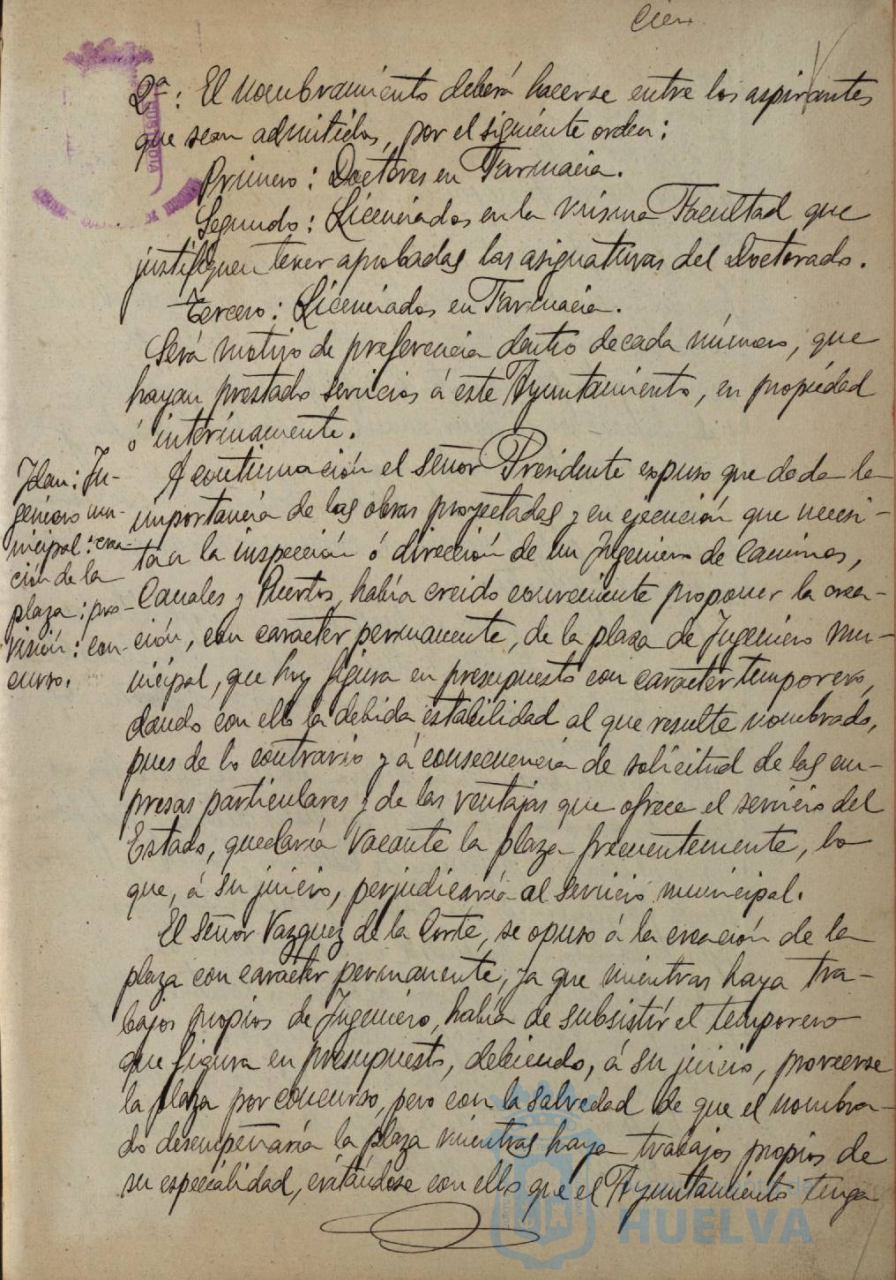 Cien
2ª: El nombramiento deberá hacerse entre los aspirantes
que sean admitidos, por el siguiente orden:
Primero: Doctores en Farmacia.
Segundo: Licenciados en la misma Facultad que
justifiquen tener aprobadas las asignaturas del Doctorado.
Tercero: Licenciados en Farmacia.
Será motivo de preferencia dentro de cada número, que
hayan prestado servicios á este Ayuntamiento, en propiedad
ó interinamente.
Idem: In-
geniero mu-
nicipal: crea-
ción de la
plaza: pro-
visión: con-
curso.
A continuación el señor Presidente expuso que dada la
importancia de las obras proyectadas y en ejecución que necesi-
tan la inspección ó dirección de un Ingeniero de Caminos,
Canales y Puertos, había creido conveniente proponer la crea-
ción, con caracter permanente, de la plaza de Ingeniero mu-
nicipal, que hoy figura en presupuesto con caracter temporero,
dando con ello la debida estabilidad al que resulte nombrado,
pues de lo contrario y á consecuencia de solicitud de las em-
presas particulares y de las ventajas que ofrece el servicio del
Estado, quedaría vacante la plaza frecuentemente, lo
que, á su juicio, perjudicaría al servicio municipal.
El señor Vazquez de la Corte, se opuso á la creación de la
plaza con caracter permanente, ya que mientras haya tra-
bajos propios de Ingeniero, había de subsistir el temporero
que figura en presupuesto, debiendo, á su juicio, proveerse
la plaza por concurso, pero con la salvedad de que el nombra-
do desempeñaría la plaza mientras haya trabajos propios de
su especialidad, evitándose con ello que el Ayuntamiento tenga
HUELVA